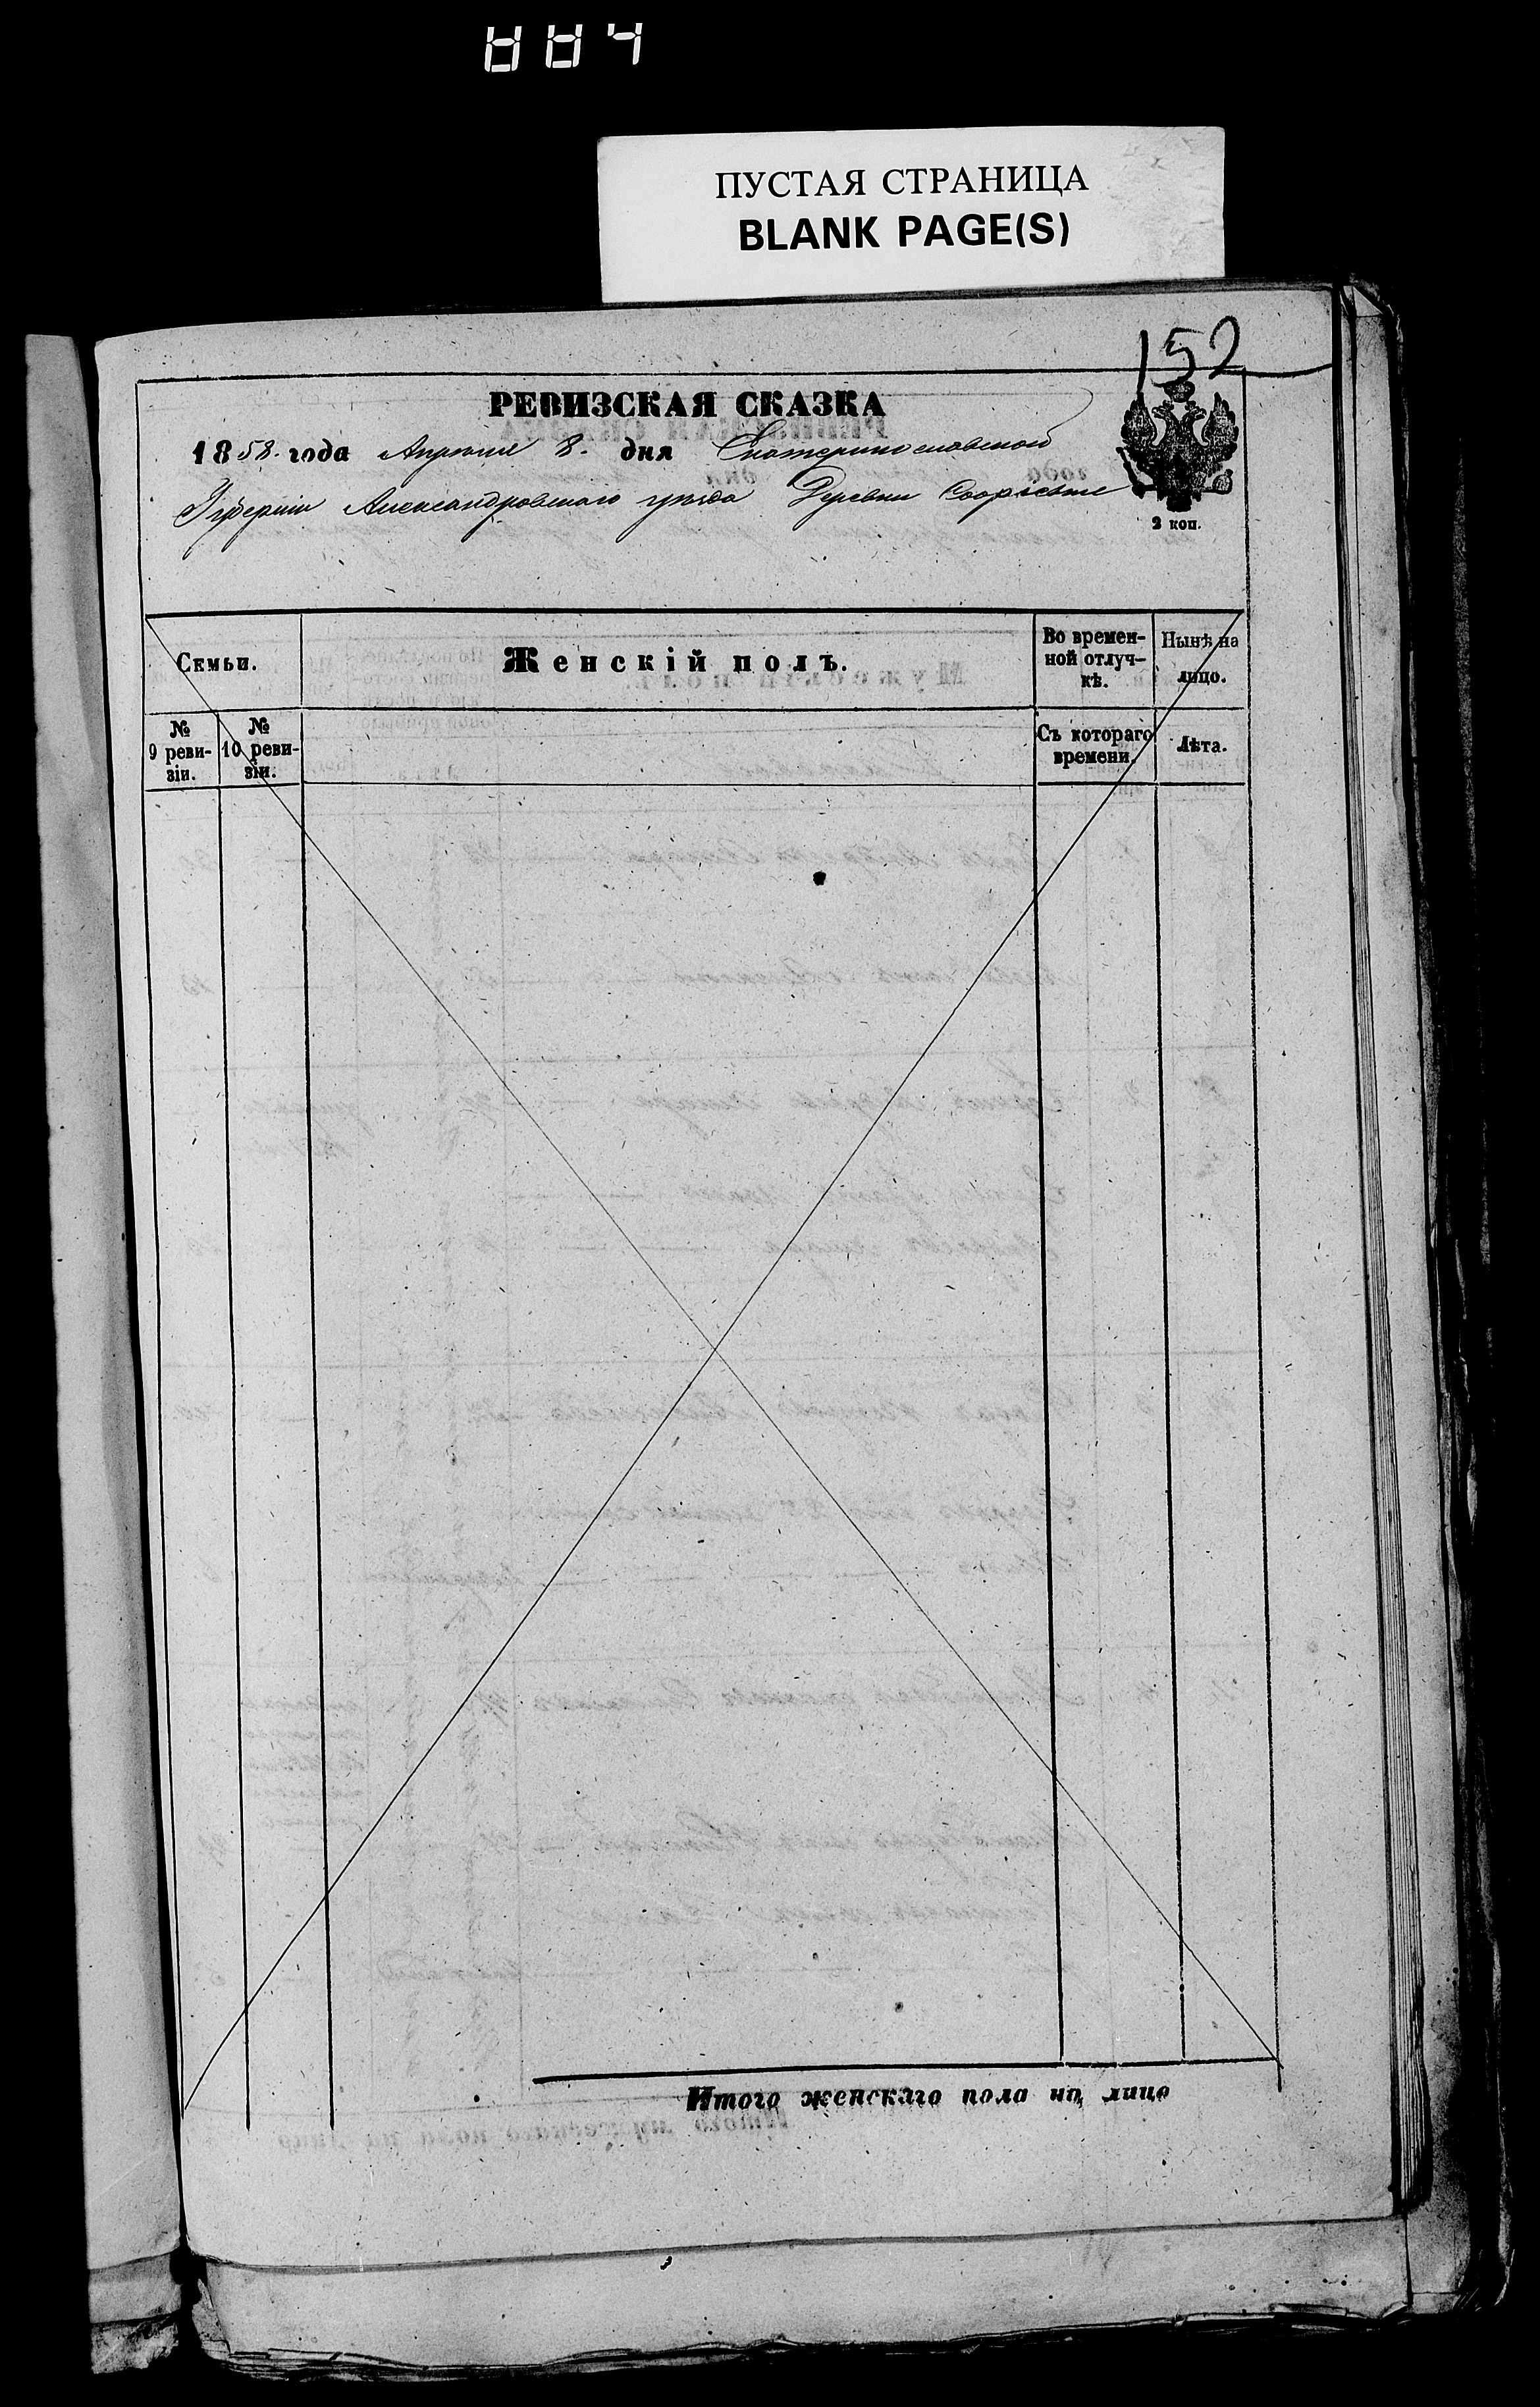 884
ПУСТАЯ СТРАНИЦА
BLANK PAGE(S)
152
РЕВИЗСКАЯ СКАЗКА
1858. года Апреля 8. дня Екатеринославской
Губернiи Александровскаго уѣзда Деревни
2 коп.
Семьи.
Женскiй полъ.
Во времен-
ной отлуч-
кѣ.
Нынѣ на
лицо.
№
9 реви-
зiи.
№
10 реви-
зiи.
Съ котораго
времени.
Лѣта.
Итого женскаго пола на лицо